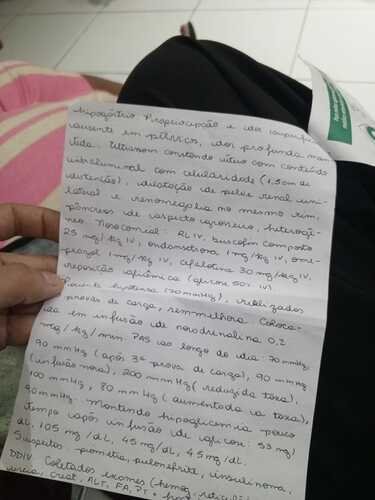 hipogástrio. Propriocepção e dor superfi
ausente em pélvicos, dor profunda man
tida. Ultrassom constando útero com conteúdo
intraluminal com celularidade (1,5cm de
distenção), dilatação de pelve renal uni-
lateral e renomegalia no mesmo rim,
pâncreas de aspecto heterogê
neo. RL IV, buscofin composto
25 mg/kg IV, ondansetrona 1mg/kg IV, ome-
prazol 1mg/kg IV, cefalotina 30mg/kg IV,
reposição glicêmica (glicose 50% IV).
Paciente hipotensa (70mmHg), realizados
provas de carga, sem melhora. Coloca-
da em infusão de noradrenalina 0,2
mg/kg/min. PAS ao longo do dia: 70mmHg
90 mmHg (após 3ª prova de carga), 90 mmHg
(infusão nora), 200 mmHg (reduzi da taxa),
100 mmHg, 80 mmHg (aumentada a taxa),
90mmHg. Mantendo hipoglicemia pouco
tempo após infusão de glicose: 53 mg/
dL, 105 mg/dL, 45 mg/dL, 45 mg/dL.
Suspeitas: piometra, pielonefrite, insulinoma,
DDIV. Coletados exames (hemog,
ureia, creat, ALT, FA, PT +